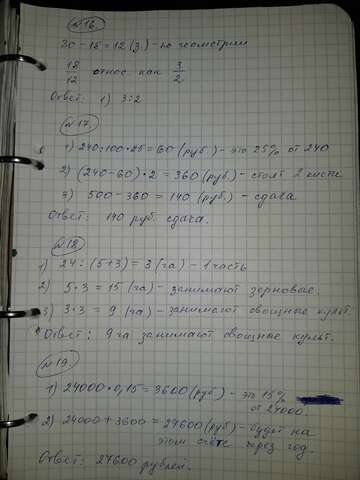 №16
30 - 18 = 12 (з.) - по геометрии
18/12 относ. как 3/2
Ответ: 1) 3:2
№17
1) 240:100•25 = 60 (руб) - это 25% от 240
2) (240-60)•2 = 360 (руб) - стоят 2 кисти
3) 500 - 360 = 140 (руб.) - сдача
Ответ: 140 руб. сдача.
№18
1) 24 : (5+3) = 3 (га) - 1 часть
2) 5•3 = 15 (га) - занимают зерновые.
3) 3•3 = 9 (га) - занимают овощные культ.
Ответ: 9 га занимают овощные культ.
№19
1) 24000•0,15 = 3600 (руб) - это 15%
от 24000.
2) 24000 + 3600 = 27600 (руб) - будет на
этом счёте через год.
Ответ: 27600 рублей.